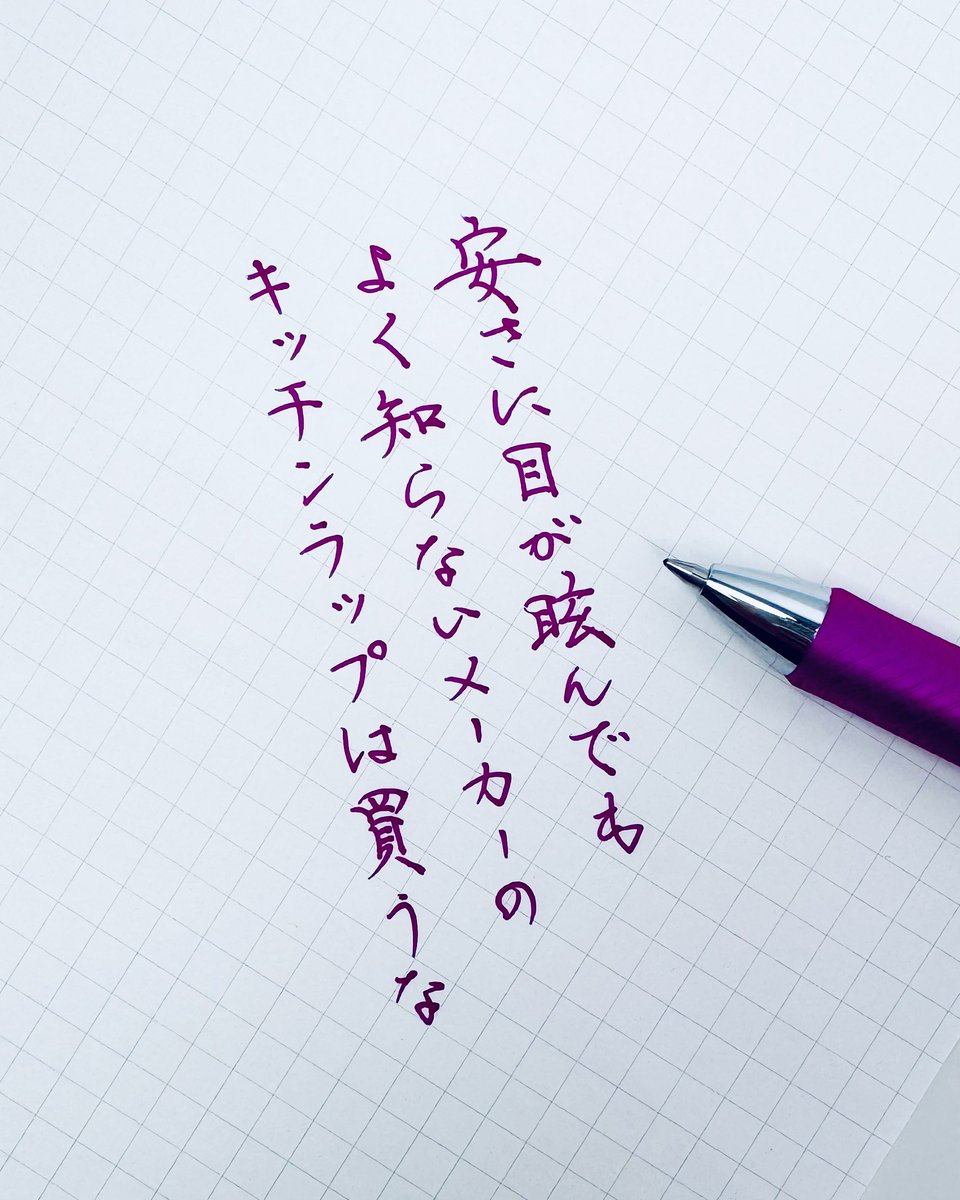 安さに目が眩んでも
よく知らないメーカーの
キッチンラップは買うな